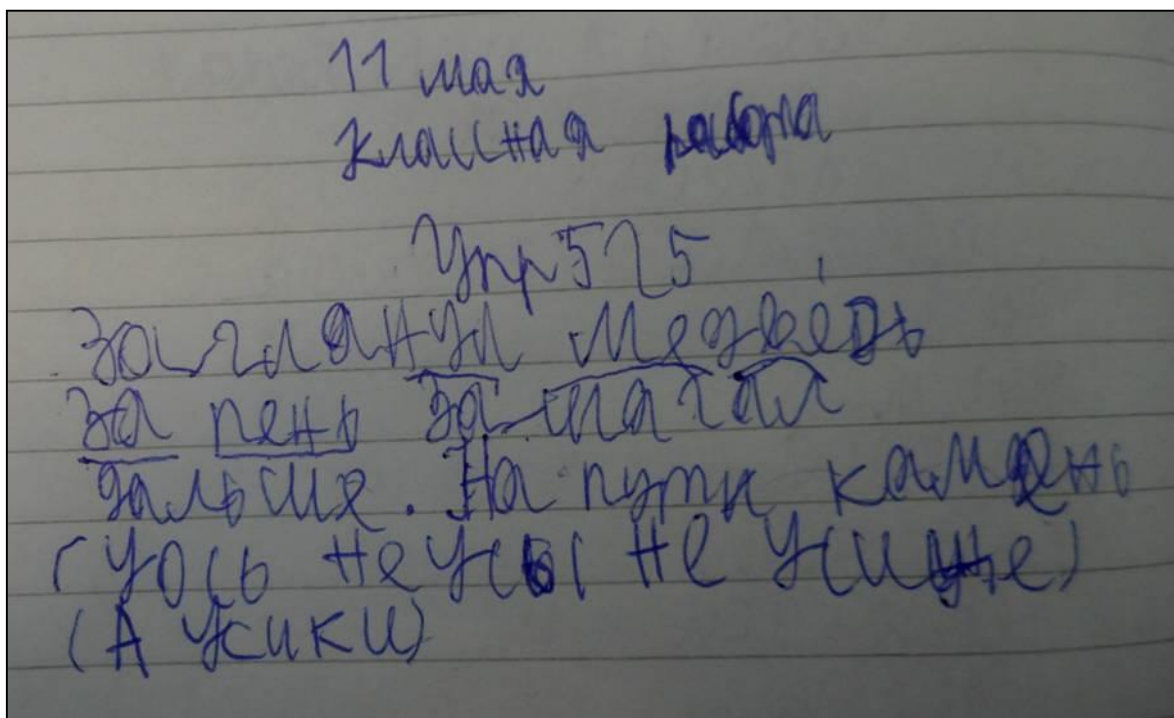 11 мая
классная работа
Упр 525
Заглянул медведь
за пень зашагал
дальше. На пути камень
не усы не
(А усики)